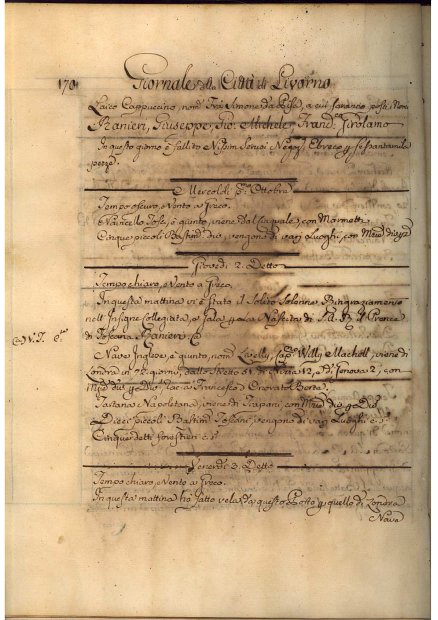 170
Giornale della Città di Livorno
Laico Cappuccino, nomo Frà Simone da Pisa, a cui saranno posti i Nomi
Ranieri, Giuseppe, Gio: Michele, Francco Girolamo
In questo giorno è fallito Nissim Ebreo p. sessantamila
pezze.
Mercoldì Pmo Ottobre
Tempo oscuro, e Vento a Greco.
Navicello Tosco, è giunto, viene dal con Marmetti
Cinque piccoli Bastimti Dni, vengono di varj Luoghi, con Merci diverse
Giovedì 2. Detto
Tempo chiaro, e Vento a Greco.
In questa mattina vi è stato il Solito Solenne Ringraziamento
nell'Insigne Collegiata, e Sala p. la Nascita di S. A. R. il Prence
di Toscana Ranieri &c
Nave Inglese, è giunto, nomo Lively, Capno Willy Machell, viene di
Londra in giorni, dallo Stretto 51 di Nizza 12, e di Genova 2, con
Merci div. p. Div. Racca Francesco Onorato Berte.
Tartana Napoletana, viene di Trapani, con Merci div. p. Div.
Dieci piccoli Bastimti Toscani, vengono di varj Luoghi &c
Cinque detti forestieri &c
Venerdì 3. Detto
Tempo chiaro, e Vento a Greco.
In questa mattina hà fatto vela da questo Porto p. quello di Londra
Nave